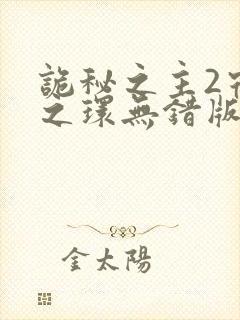 詭秘之主2
之環無錯版
金太陽